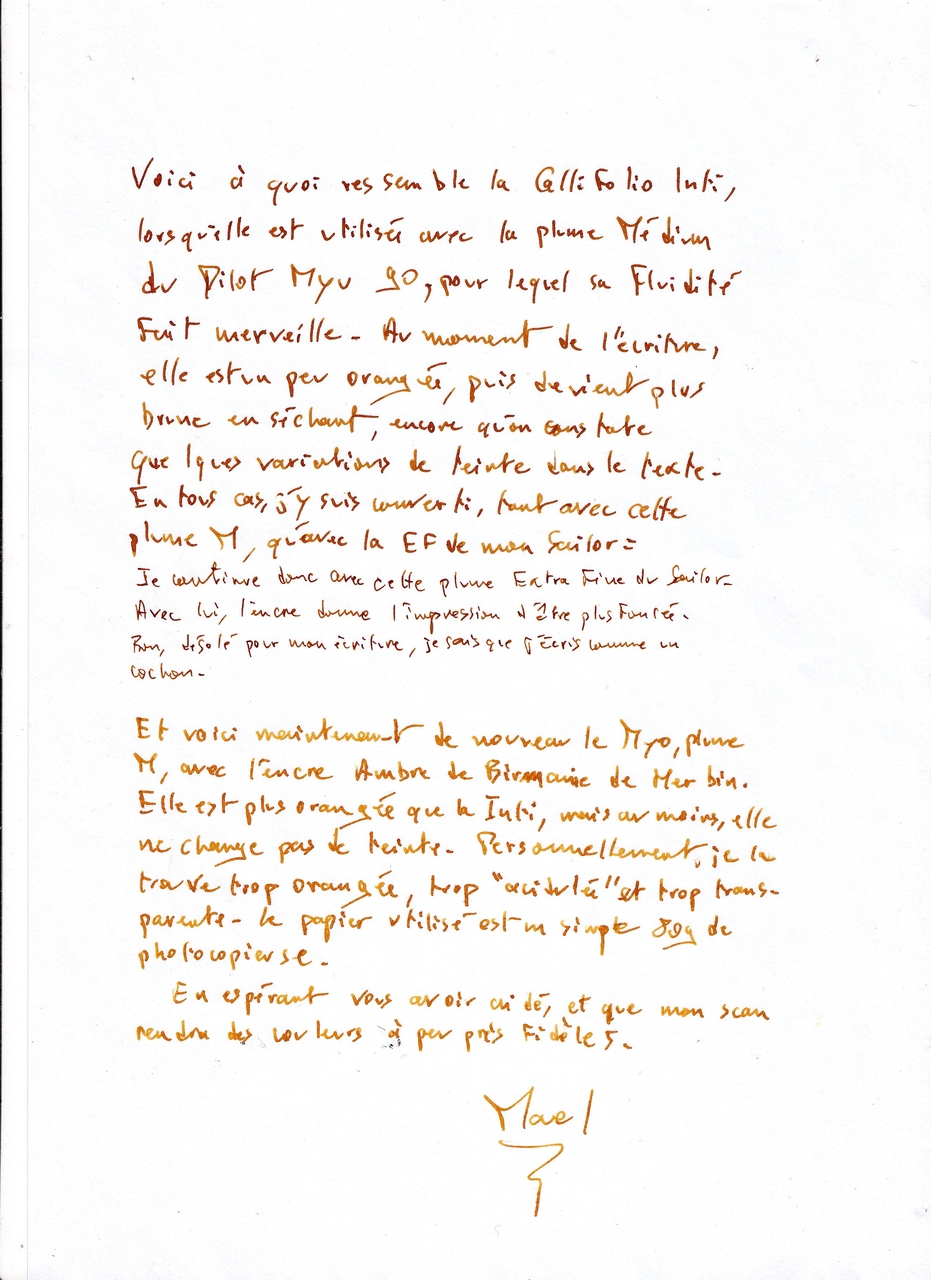 Voici à quoi ressemble la Callifolio Inti,
lorsqu'elle est utilisée avec la plume Médium
du Pilot Myu 90, pour lequel sa fluidité
fait merveille. Au moment de l'écriture,
elle est un peu orangée, puis devient plus
brune en séchant, encore qu'on constate
quelques variations de teinte dans le texte.
En tous cas, j'y suis converti, tant avec cette
plume M, qu'avec la EF de mon Sailor =
Je continue donc avec cette plume Extra Fine du Sailor.
Avec lui, l'encre donne l'impression d'être plus foncée.
Bon, désolé pour mon écriture, je sais que j'écris comme un
cochon.
Et voici maintenant de nouveau le Myo, plume
M, avec l'encre Ambre de Birmanie de Herbin.
Elle est plus orangée que la Inti, mais au moins, elle
ne change pas de teinte. Personnellement, je la
trouve trop orangée, trop "acidulée" et trop trans-
parente. Le papier utilisé est un simple 80g de
photocopieuse.
En espérant vous avoir aidé, et que mon scan
rendra des couleurs à peu près fidèles.
Mael